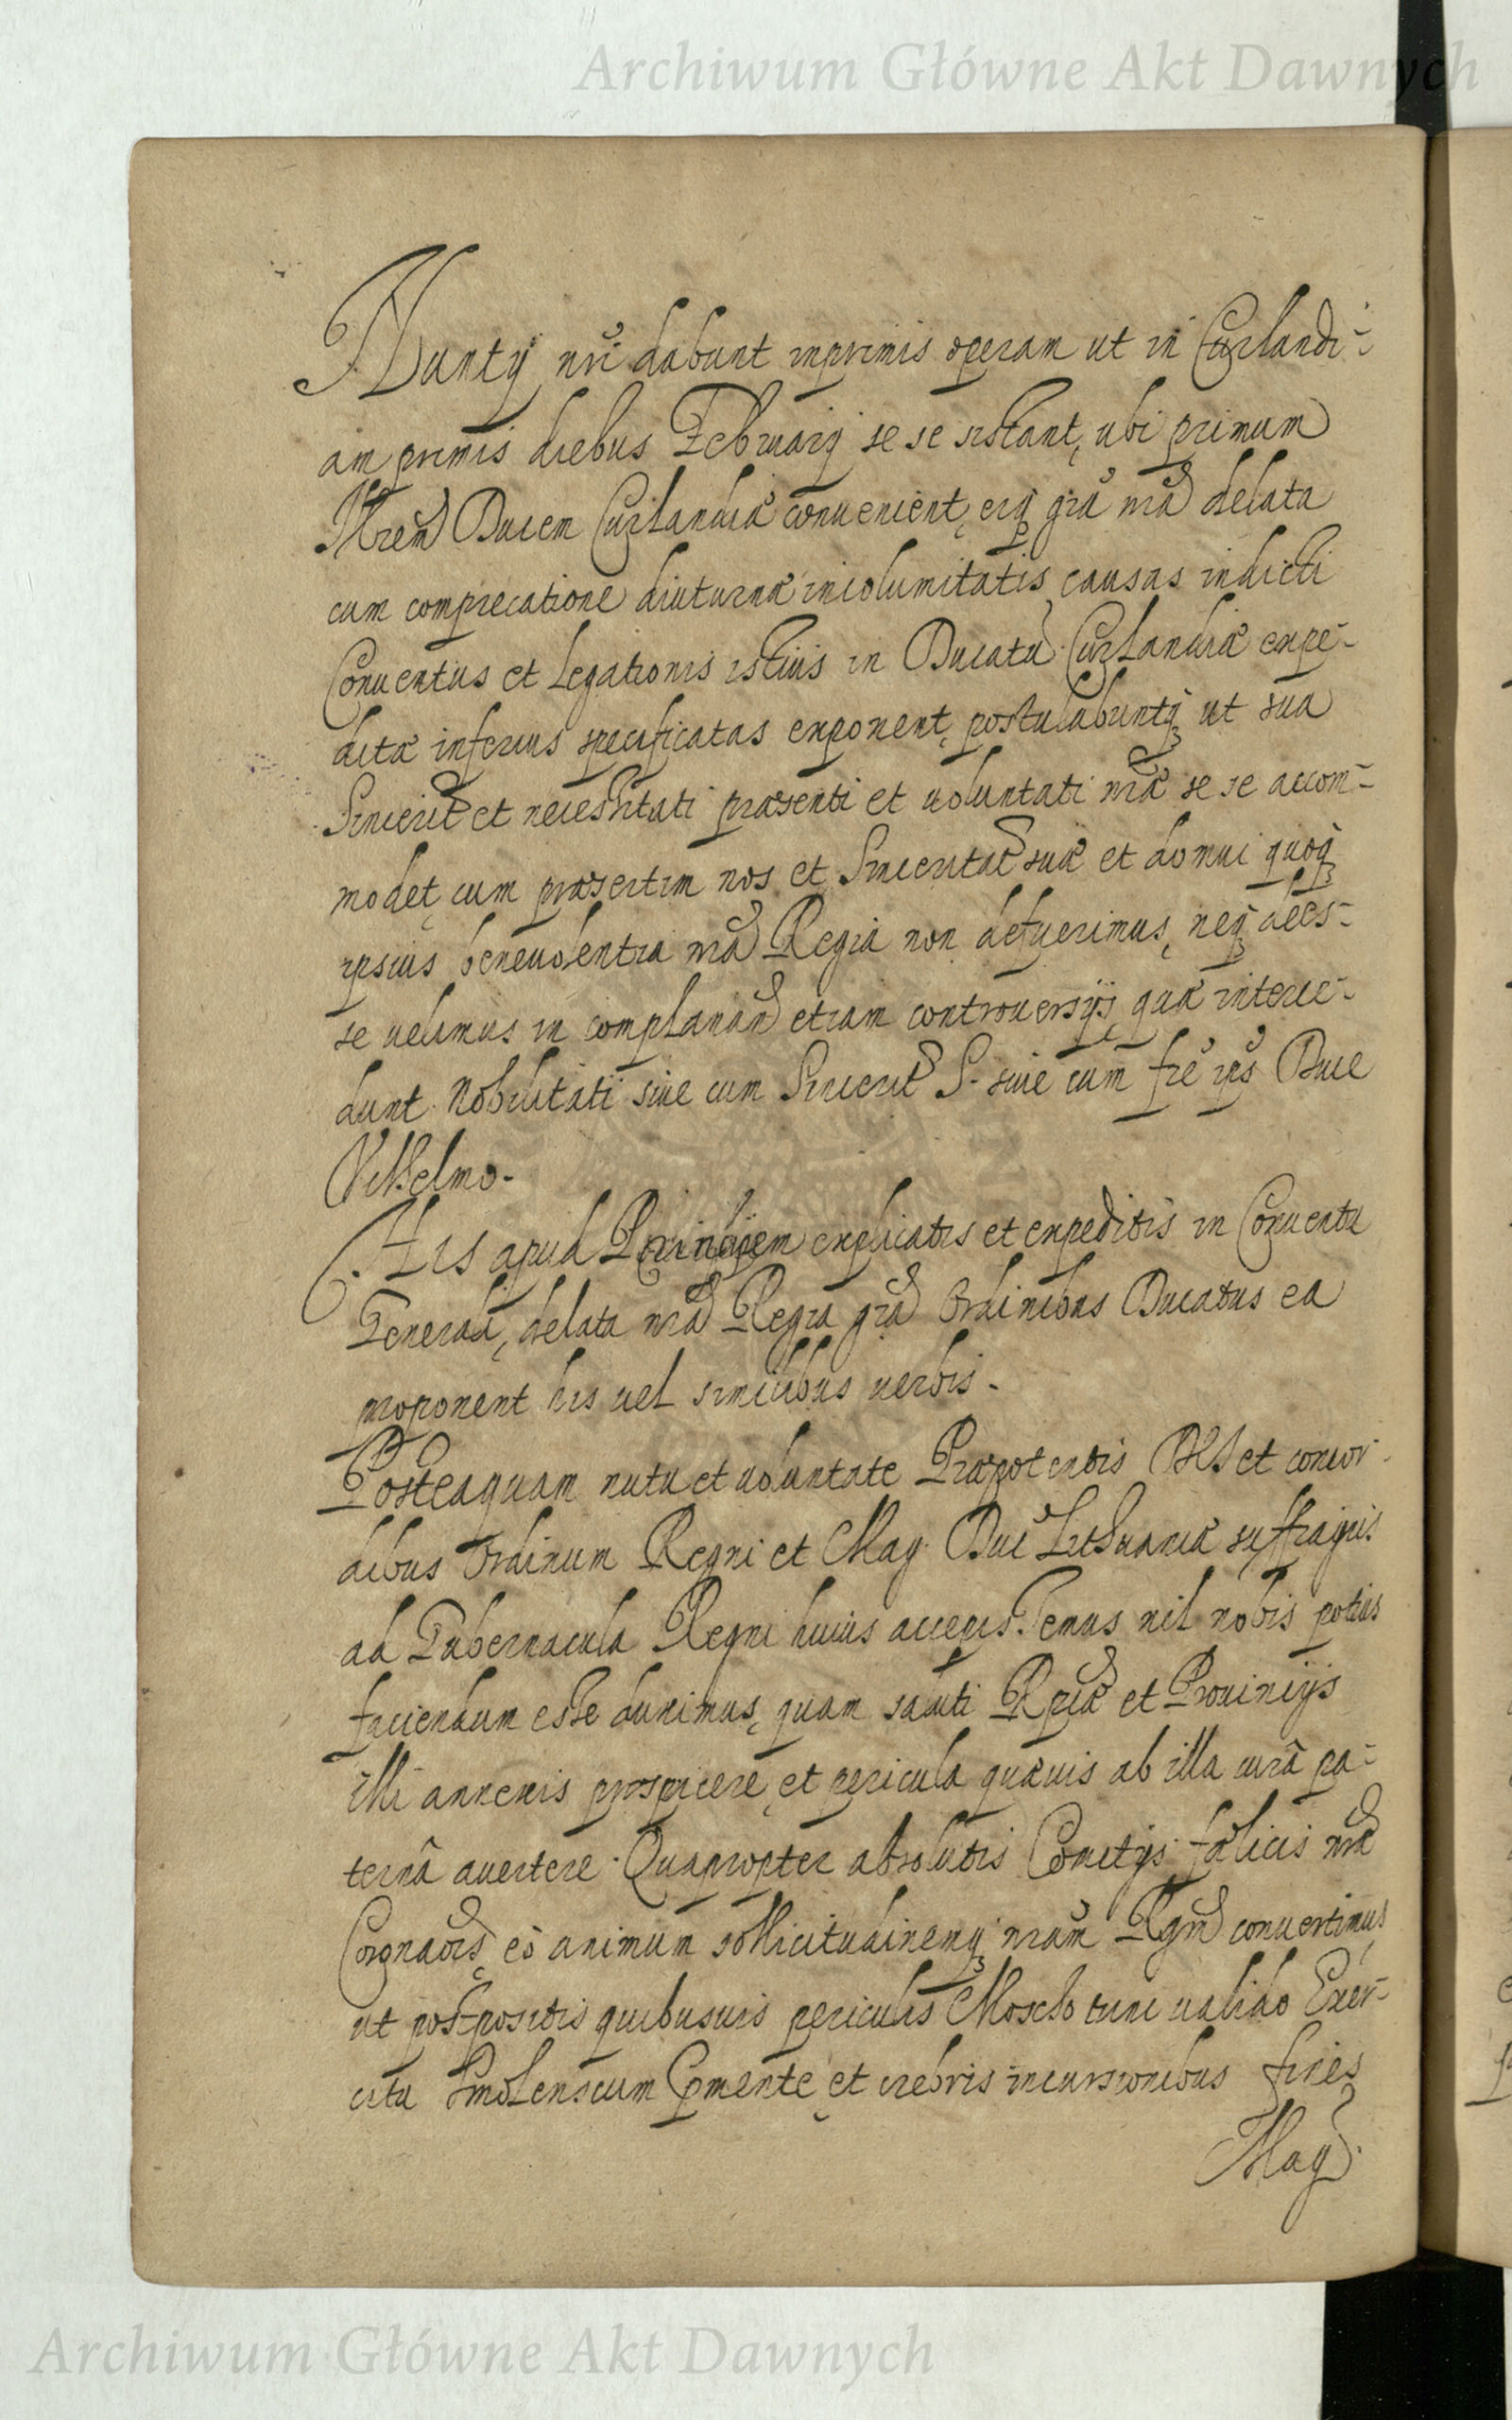 Archiwum Główne Akt Dawnych
Nuntij nri dabunt inprimis operam ut in Curlandi-
am primis diebus Februarij se se sistant, ubi primum
Illrem Ducem Curlandiæ conuenient, eiq grã nrã delata
cum comprecatione diuturnæ incolumitatis, causas indicti
Conuentus et Legationis istius in Ducatu Curlandiæ expe-
ditæ inferius specificatas exponent, postulabuntq ut sua
Sincerit et necessitati præsenti et voluntati nræ se se accom-
modet, cum præsertim nos et Sinceritati suæ et domui quoq
ipsius beneuolentia nra Regia non defuerimus, neq dees-
se uelimus in complanan etiam controuersijs, quæ interce-
dunt Nobilitati siue cum Sincerit S. siue cum fre ips Duce
Vilhelmo.
His apud Principem explicatis et expeditis in Conuentu
Generali, delata nra Regia gra Ordinibus Ducatus ea
proponent his uel similibus uerbis.
Posteaquam nutu et uoluntate Præpotentis DEI et concor-
dibus Ordinum Regni et Mag. Duc Lithuaniæ suffragijs
ad Gubernacula Regni huius accessissemus nil nobis potius
faciendum esse duximus, quam saluti Rpcæ et Prouincijs
illi annexis prospicere, et pericula quæuis ab illa curâ pa-
ternâ auertere. Quapropter absolutis Comitijs fælicis nræ
Coronaois, eò animum sollicitudinemq nram Rgm conuertimus,
ut postpositis quibusuis periculis Moscho tunc ualido Exer-
citu Smolenscum premente, et crebris incursionibus fines
Mag
Archiwum Główne Akt Dawnych